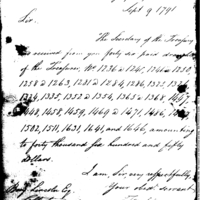 Sept 9 1791
Sir.
The Secretary of the Treasury
has received from you forty six paid drafts
of the Treasurer, No 1236 a 1241, 1246 a 1250,
1258 a 1263, 1281 a 1284, 1286, 1323,
1324, 1335, 1352, 1354, 1365 a 1368, 1447
1448, 1458, 1459, 1469 a 1471, 1486,
1502, 1511, 1631, 1641, and 1646, amounting
to forty thousand six hundred and fifty
Dollars.
I am, Sir, very respectfully,
Your obed. servant
Benj Lincoln Esq